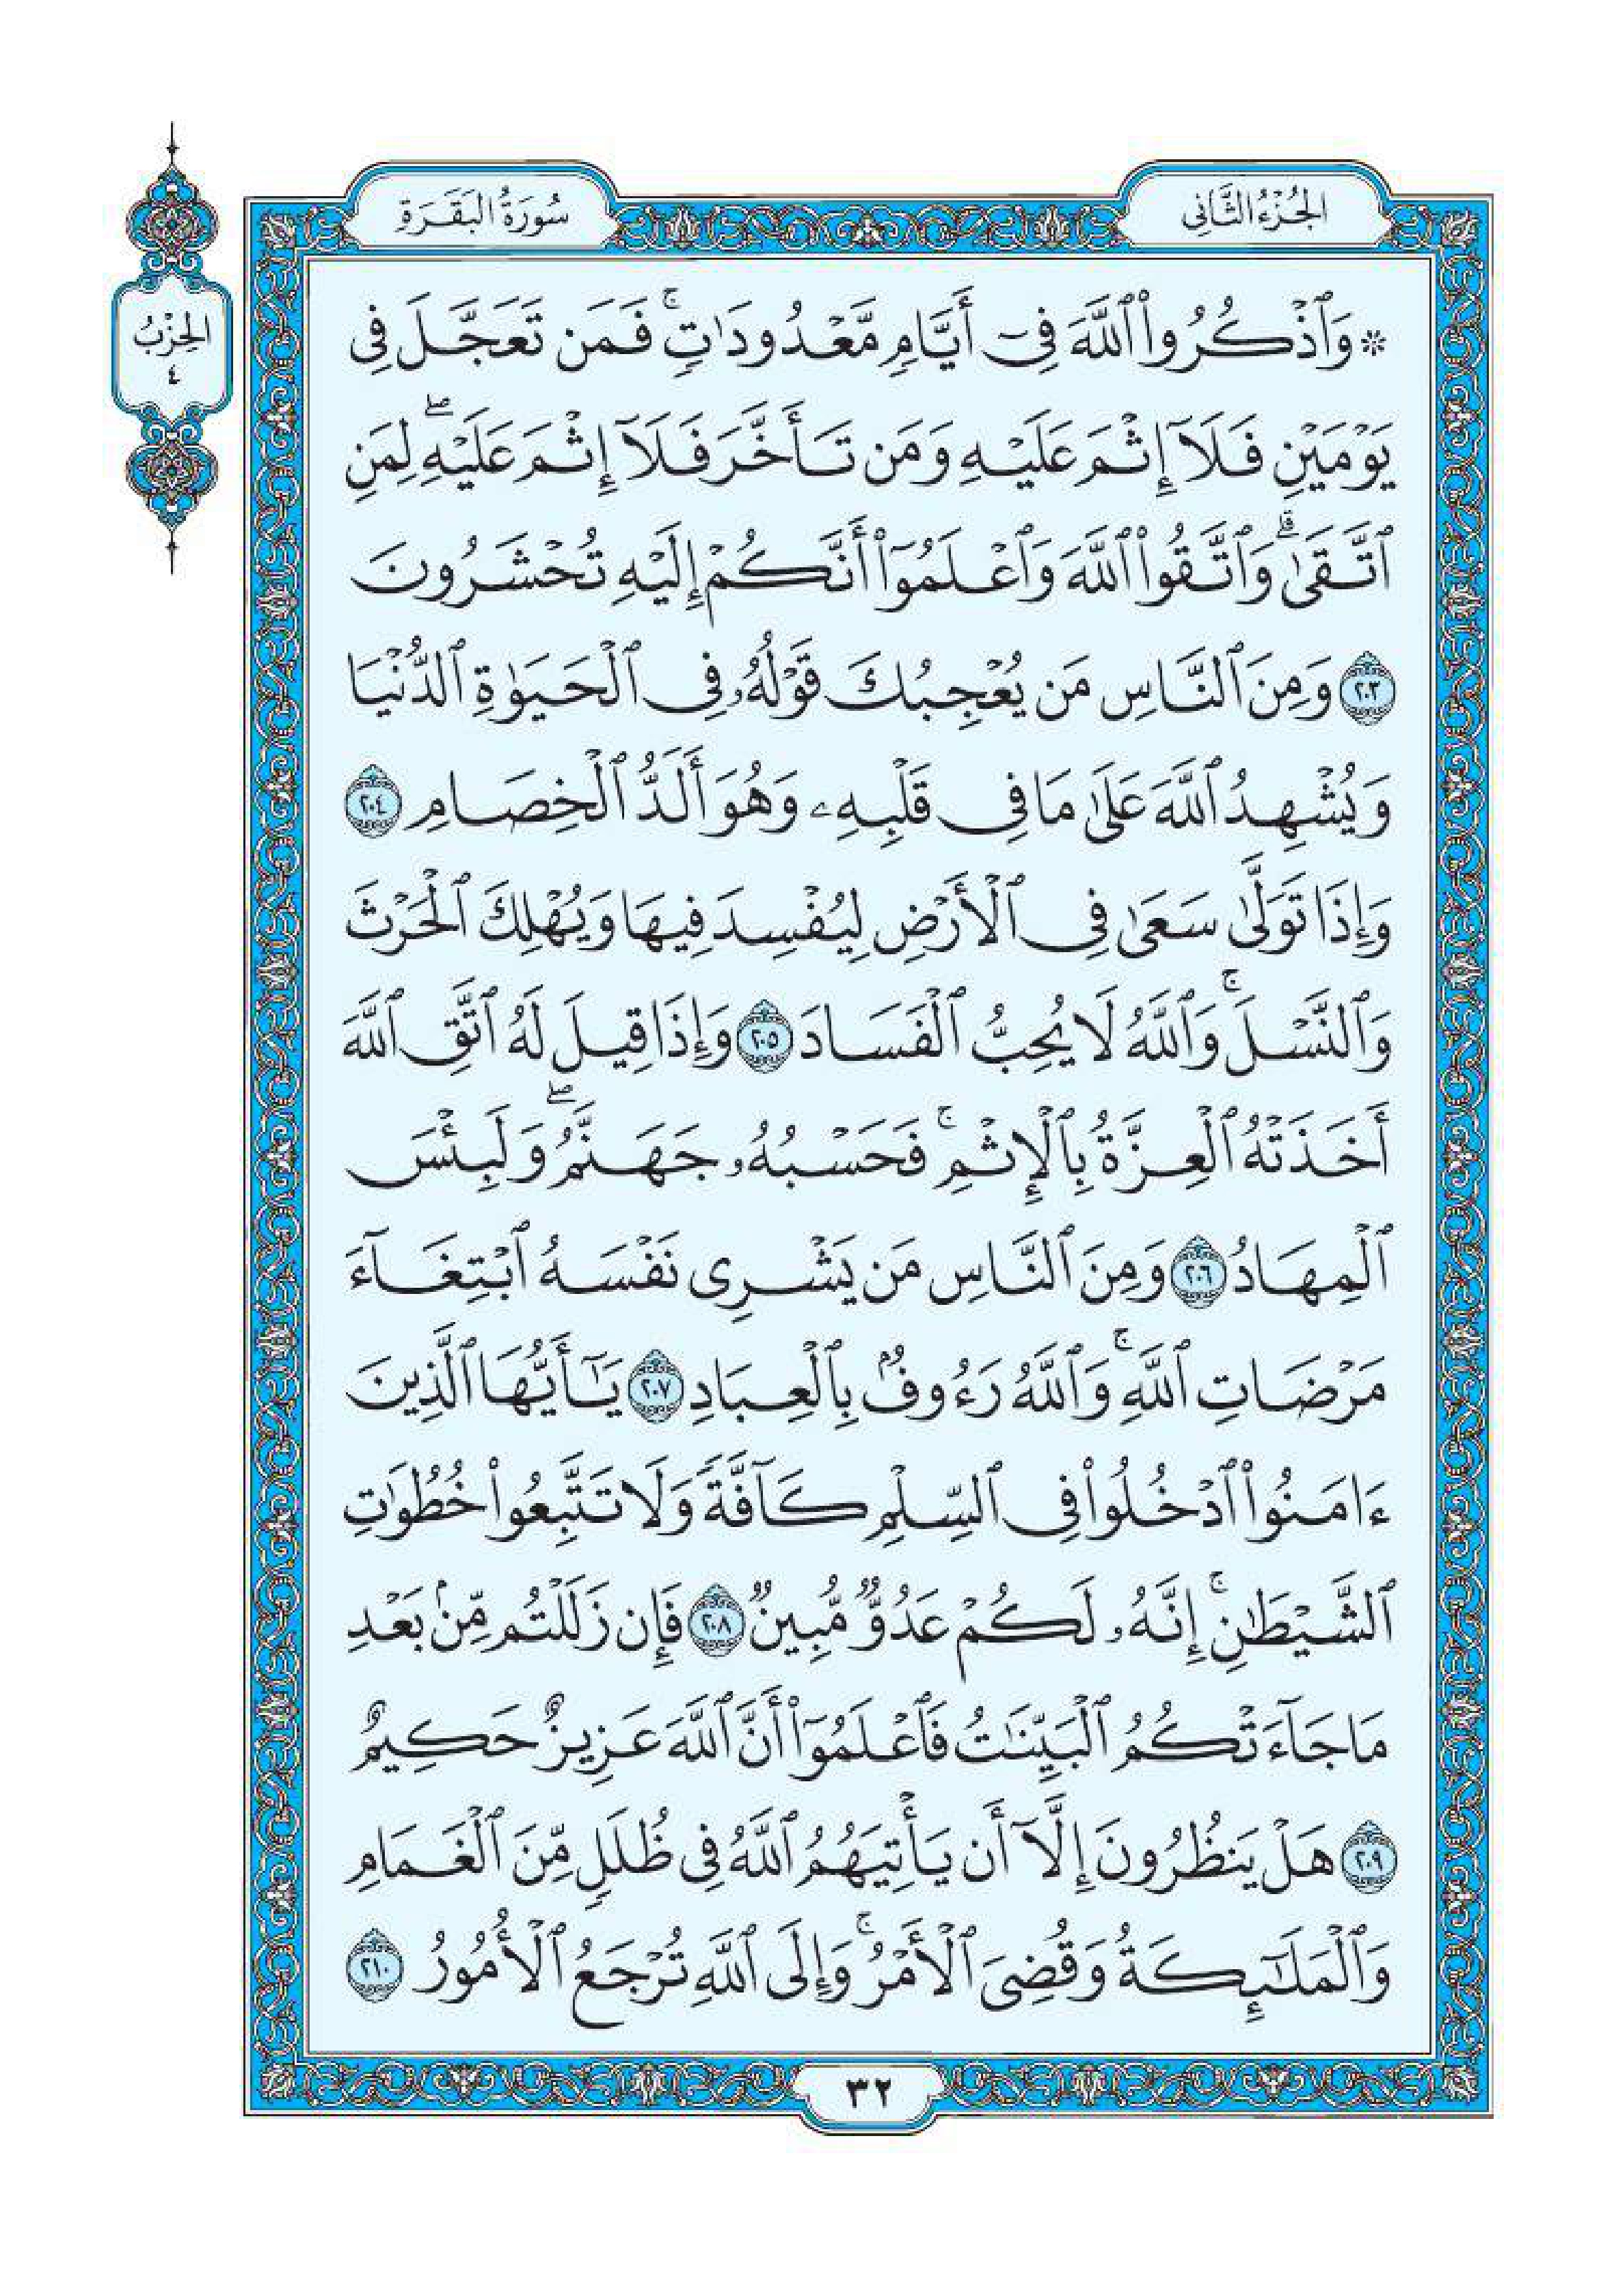 الجُزْءُ الثَّانِى
سُورَةُ البَقَرَةِ
الحِزْبُ
٤
۞ وَٱذْكُرُوا۟ ٱللَّهَ فِىٓ أَيَّامٍ مَّعْدُودَٰتٍ ۚ فَمَن تَعَجَّلَ فِى
يَوْمَيْنِ فَلَآ إِثْمَ عَلَيْهِ وَمَن تَأَخَّرَ فَلَآ إِثْمَ عَلَيْهِ ۖ لِمَنِ
ٱتَّقَىٰ ۗ وَٱتَّقُوا۟ ٱللَّهَ وَٱعْلَمُوٓا۟ أَنَّكُمْ إِلَيْهِ تُحْشَرُونَ
٢٠٣ وَمِنَ ٱلنَّاسِ مَن يُعْجِبُكَ قَوْلُهُۥ فِى ٱلْحَيَوٰةِ ٱلدُّنْيَا
وَيُشْهِدُ ٱللَّهَ عَلَىٰ مَا فِى قَلْبِهِۦ وَهُوَ أَلَدُّ ٱلْخِصَامِ ٢٠٤
وَإِذَا تَوَلَّىٰ سَعَىٰ فِى ٱلْأَرْضِ لِيُفْسِدَ فِيهَا وَيُهْلِكَ ٱلْحَرْثَ
وَٱلنَّسْلَ ۚ وَٱللَّهُ لَا يُحِبُّ ٱلْفَسَادَ ٢٠٥ وَإِذَا قِيلَ لَهُ ٱتَّقِ ٱللَّهَ
أَخَذَتْهُ ٱلْعِزَّةُ بِٱلْإِثْمِ ۚ فَحَسْبُهُۥ جَهَنَّمُ ۖ وَلَبِئْسَ
ٱلْمِهَادُ ٢٠٦ وَمِنَ ٱلنَّاسِ مَن يَشْرِى نَفْسَهُ ٱبْتِغَآءَ
مَرْضَاتِ ٱللَّهِ ۚ وَٱللَّهُ رَءُوفٌۢ بِٱلْعِبَادِ ٢٠٧ يَـٰٓأَيُّهَا ٱلَّذِينَ
ءَامَنُوا۟ ٱدْخُلُوا۟ فِى ٱلسِّلْمِ كَآفَّةً وَلَا تَتَّبِعُوا۟ خُطُوَٰتِ
ٱلشَّيْطَـٰنِ ۚ إِنَّهُۥ لَكُمْ عَدُوٌّ مُّبِينٌ ٢٠٨ فَإِن زَلَلْتُم مِّنۢ بَعْدِ
مَا جَآءَتْكُمُ ٱلْبَيِّنَـٰتُ فَٱعْلَمُوٓا۟ أَنَّ ٱللَّهَ عَزِيزٌ حَكِيمٌ
٢٠٩ هَلْ يَنظُرُونَ إِلَّآ أَن يَأْتِيَهُمُ ٱللَّهُ فِى ظُلَلٍ مِّنَ ٱلْغَمَامِ
وَٱلْمَلَـٰٓئِكَةُ وَقُضِىَ ٱلْأَمْرُ ۚ وَإِلَى ٱللَّهِ تُرْجَعُ ٱلْأُمُورُ ٢١٠
٣٢